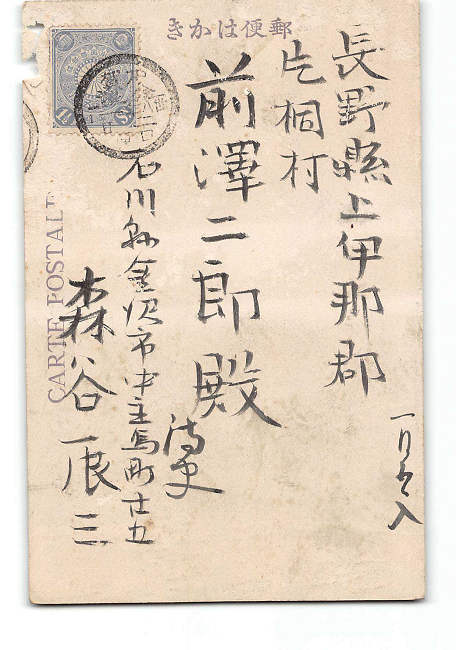 郵便はかき
長野縣上伊那郡
片桐村
前澤二郎殿
石川縣金沢市中主馬町廿五
森谷
CARTE POSTALE
1½ Sn